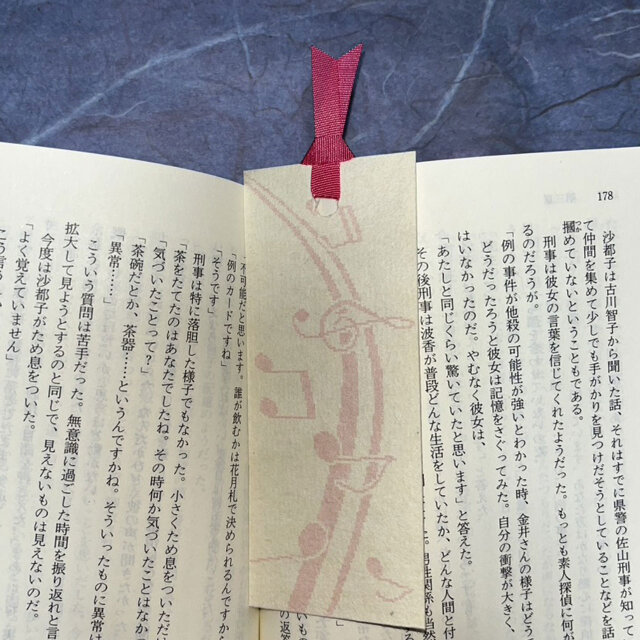 178
沙都子は古川智子から聞いた話、それはすでに県警の佐山刑事が知って
て仲間を集めて少しでも手がかりを見つけだそうとしていることなどを話
摑めていないということもである。
刑事は彼女の言葉を信じてくれたようだった。もっとも素人探偵に何
るのだろうが。
「例の事件が他殺の可能性が強いとわかった時、金井さんの様子はどう
どうだったろうと彼女は記憶をさぐってみた。自分の衝撃が大きく、
はいなかったのだ。やむなく彼女は、
「あたしと同じくらい驚いていたと思います」と答えた。
その後刑事は波香が普段どんな生活をしていたか、どんな人間と付
た。男性関係も当然
の返答
不可能だと思います。誰が飲むかは花月札で決められるんですか
「例のカードですね」
「そうです」
刑事は特に落胆した様子でもなかった。小さくため息をついただ
「茶をたてたのはあなたでしたね。その時何か気づいたことはなか
「気づいたことって？」
「茶碗だとか、茶器……というんですかね。そういったものに異常は
「異常……」
こういう質問は苦手だった。無意識に過ごした時間を振り返れと言
拡大して見ようとするのと同じで、見えないものは見えないのだ。
今度は沙都子がため息をついた。
「よく覚えていません」